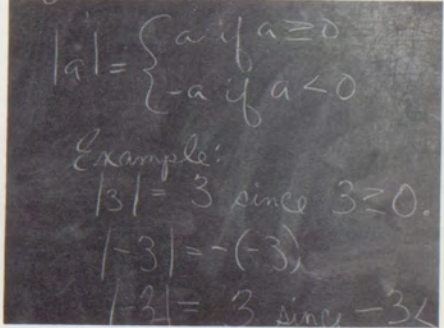 |a| = { a if a ≥ 0
-a if a < 0
Example:
|3| = 3 since 3 ≥ 0.
|-3| = -(-3)
|-3| = 3 since -3 <